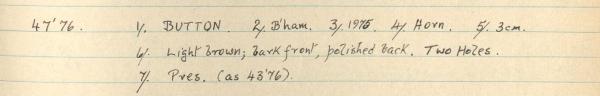 47'76. 1/. BUTTON. 2/. B'ham. 3/. 1975. 4/. Horn. 5/. 3cm.
6/. Light brown; bark front, polished back. Two Holes.
7/. Pres. (as 43'76).